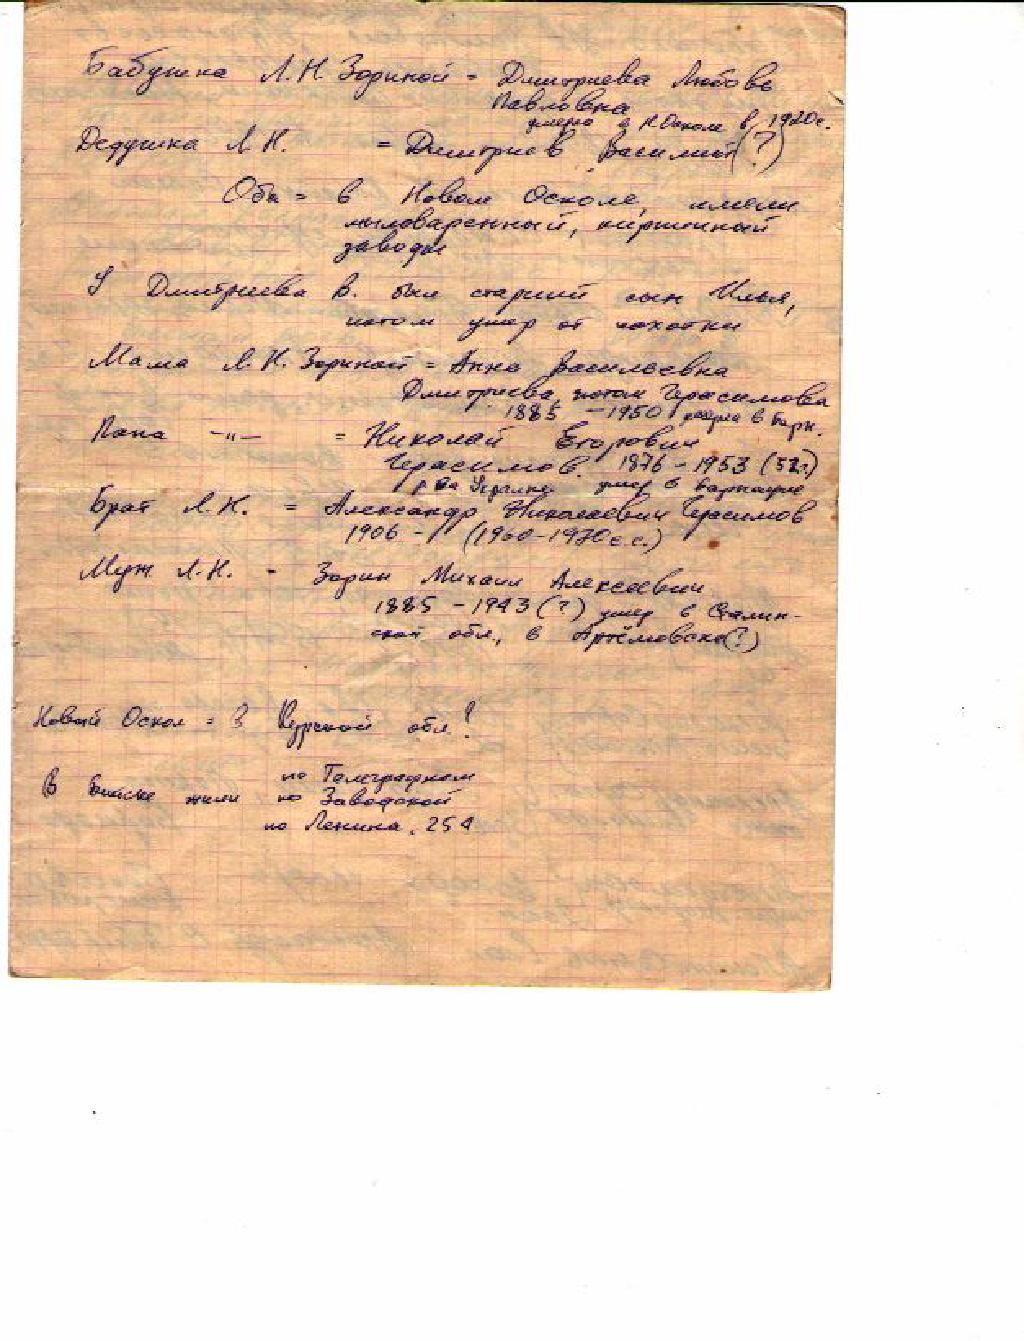 Бабушка Л.Н. Зориной = Дмитриева Любовь
Павловна
умерла в Н.Осколе в 1920г.
Дедушка Л.Н. = Дмитриев Василий (?)
Оба = в Новом Осколе, имели
мыловаренный, кирпичный
заводы
У Дмитриева В. был старший сын Илья,
потом умер от чахотки
Мама Л.Н. Зориной = Анна Васильевна
Дмитриева, потом Герасимова
1885 – 1950 умерла в Барн.
Папа –„– = Николай Егорович
Герасимов. 1876 – 1953 (52г.)
р. на Украине умер в Барнауле
Брат Л.Н. = Александр Николаевич Герасимов
1906 – (1960–1970г.г.)
Муж Л.Н. - Зорин Михаил Алексеевич
1885 – 1943 (?) умер в Сталин-
ской обл., в Артёмовске (?)
Новый Оскол = в Курской обл!
В Бийске жили по Телеграфной
по Заводской
по Ленина, 254